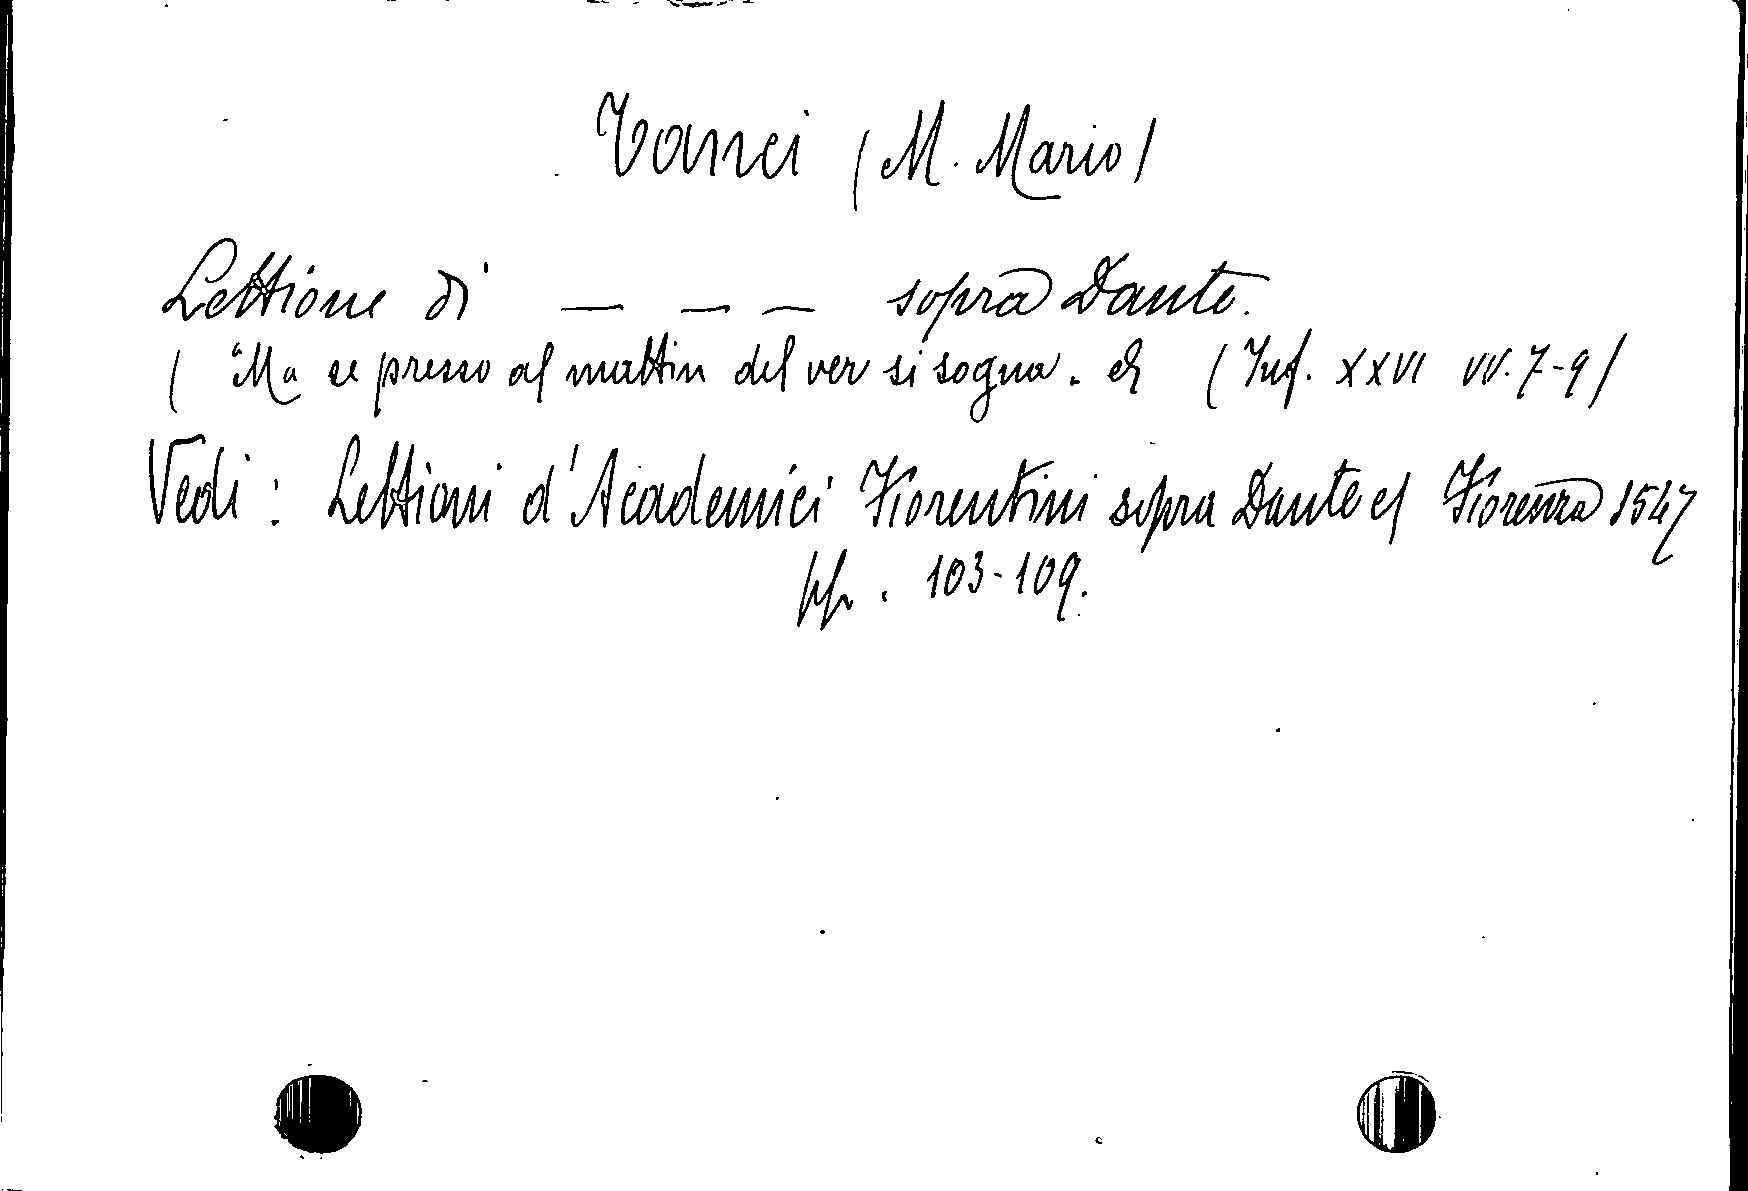 Tanci (M. Mario)
Lettione di — — — sopra Dante.
( "Ma se presso al mattin del ver si sogna. (Inf. XXVI vv. 7-9)
Vedi: Lettioni d'Academici Fiorentini sopra Dante Fiorenza 1547
pp. 103-109.